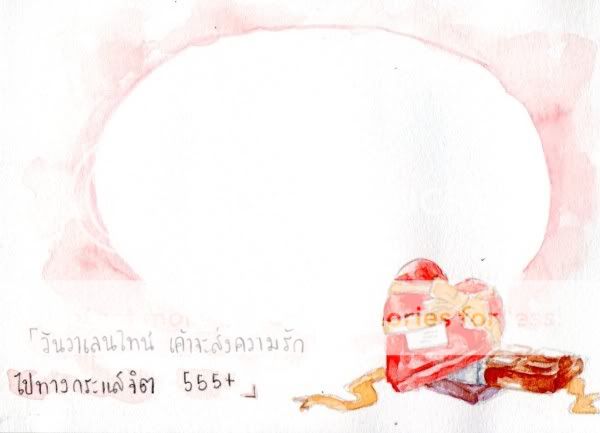 「วันวาเลนไทน์ เค้าจะส่งความรัก
ไปทางกระแสจิต 555+」